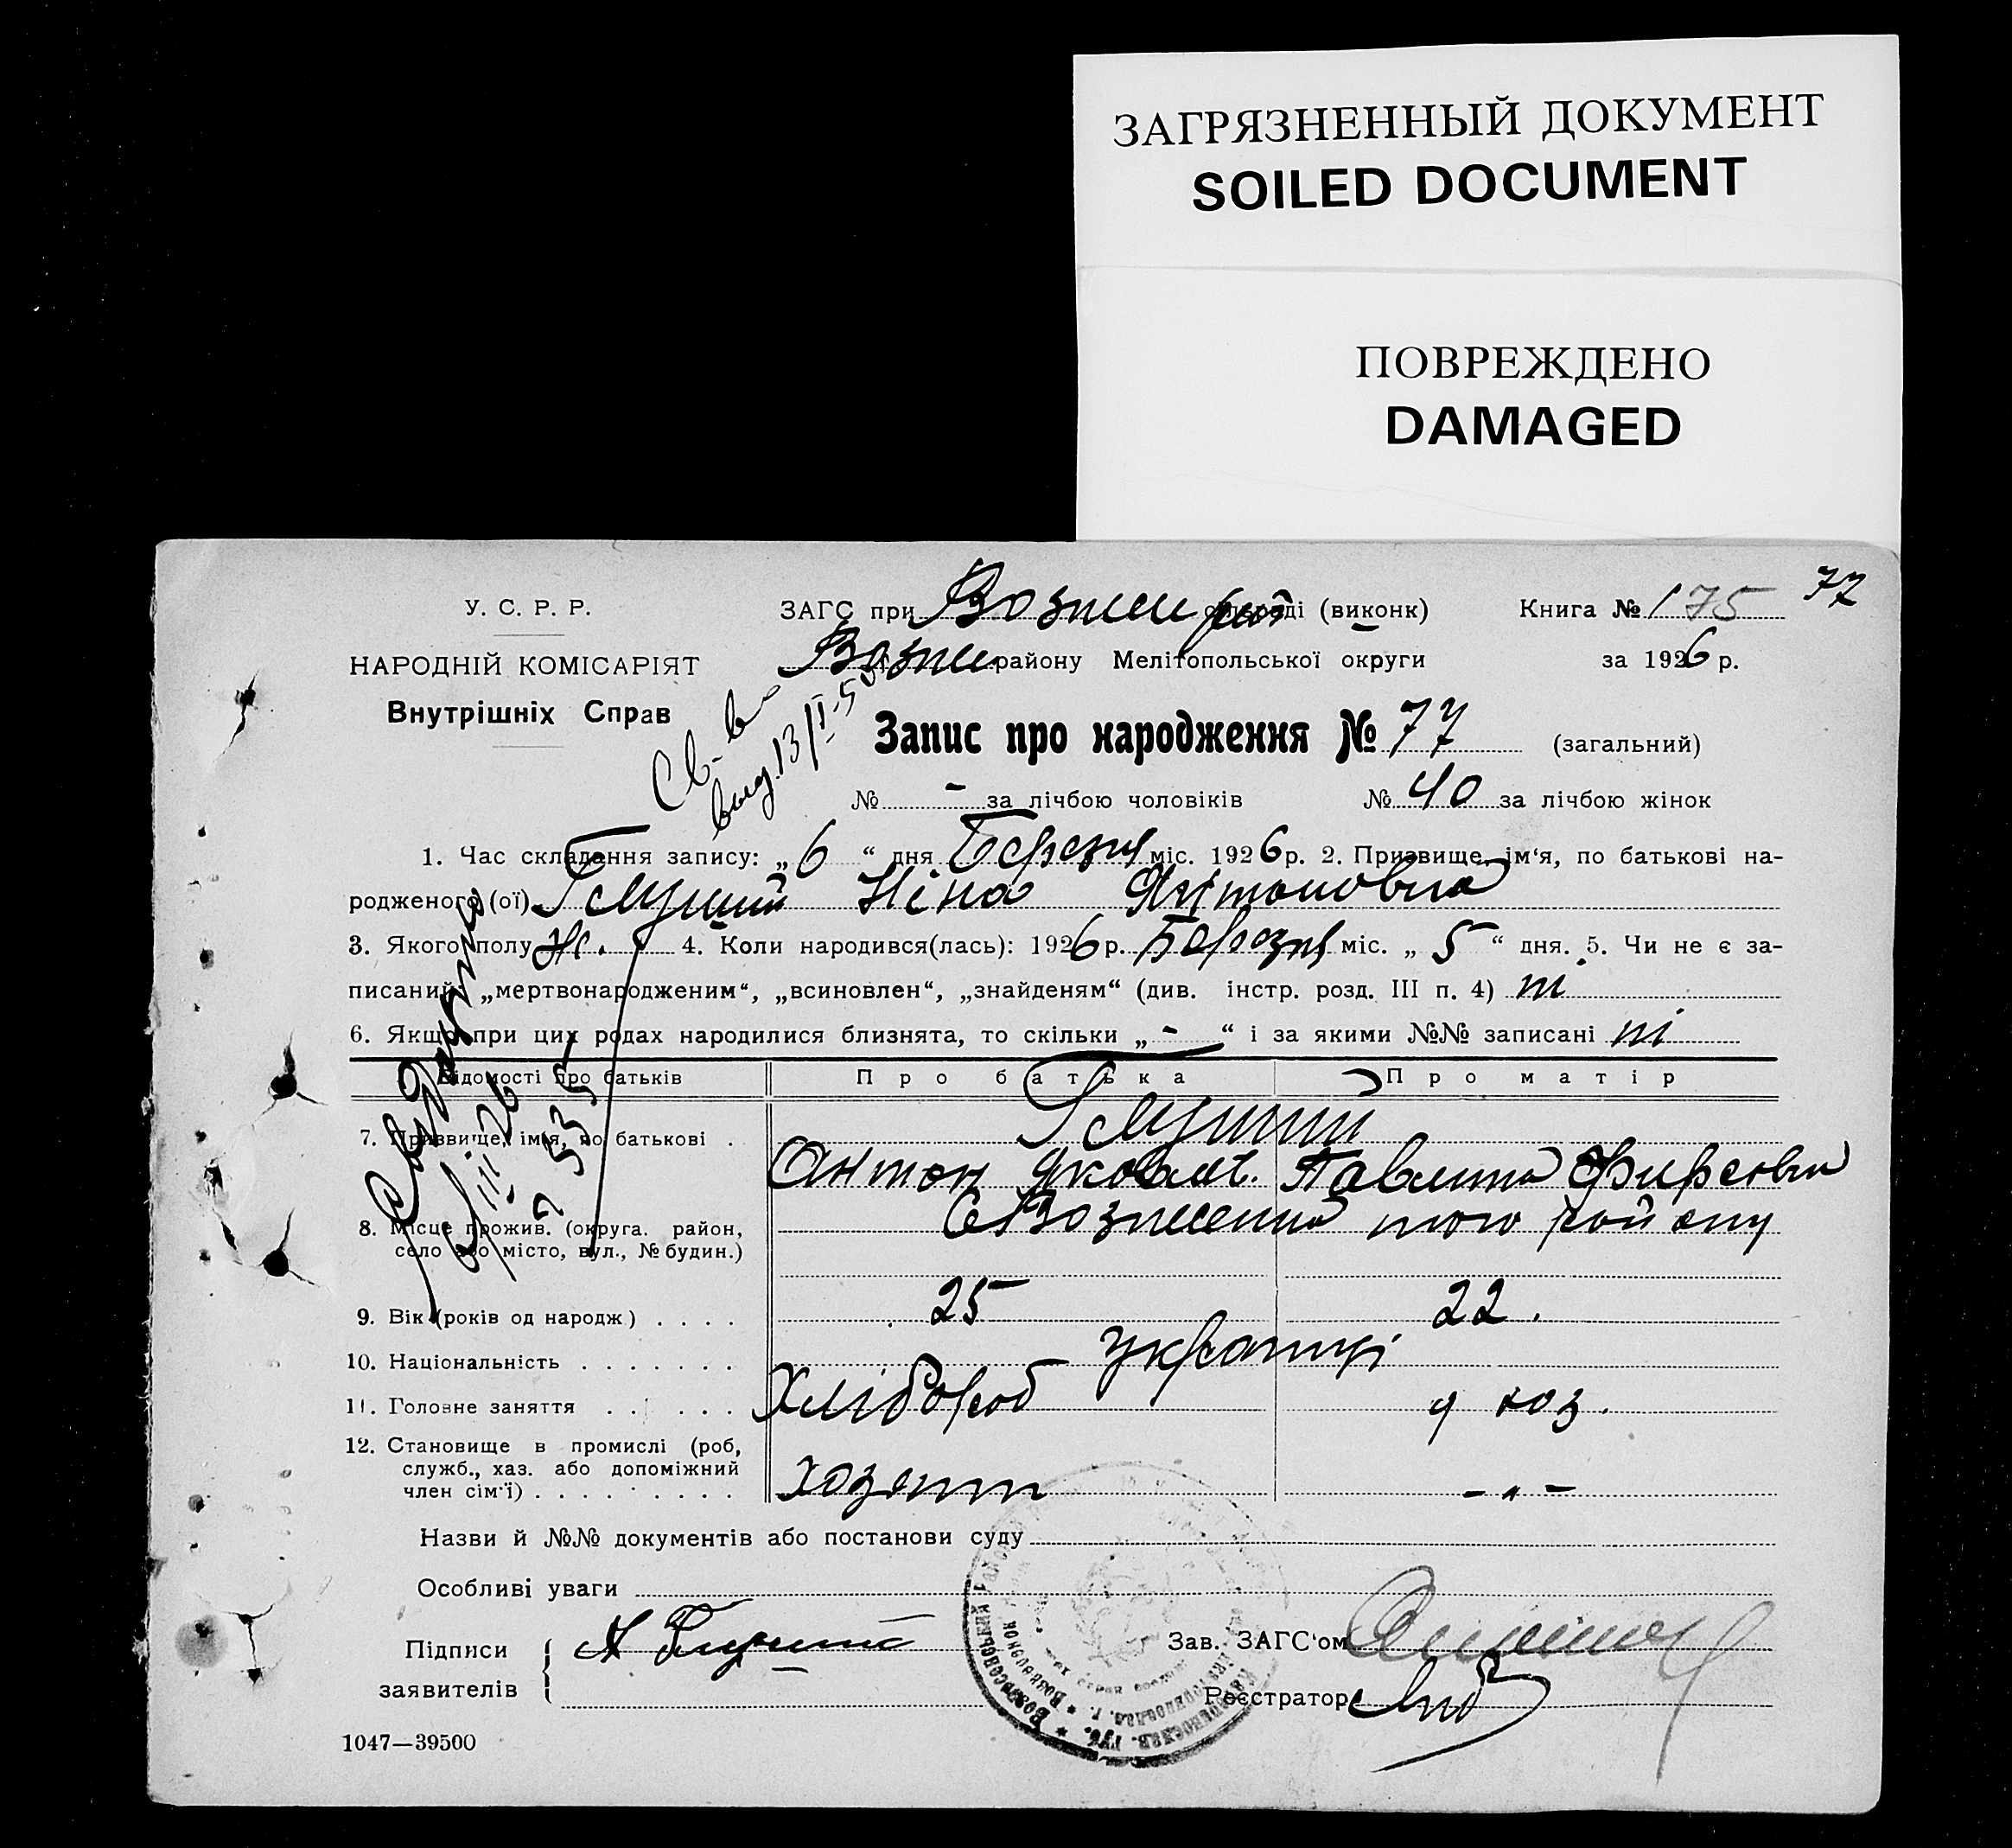 ЗАГРЯЗНЕННЫЙ ДОКУМЕНТ
SOILED DOCUMENT
ПОВРЕЖДЕНО
DAMAGED
77
У. С. Р. Р.
ЗАГС при Вознес рай (виконк)
Книга № 175
НАРОДНІЙ КОМІСАРІЯТ
Вознес району Мелітопольської округи
за 1926 р.
Внутрішніх Справ
Св-во
выд. 13/I-50
Запис про народження № 77 (загальний)
№ - за лічбою чоловіків № 40 за лічбою жінок
1. Час складання запису: „ 6 “ дня Березня міс. 1926 р. 2. Призвище, ім‘я, по батькові на-
родженого (ої) Глущий Ніна Антоновна
3. Якого полу ж. 4. Коли народився(лась): 1926 р. Березня міс. „ 5 “ дня. 5. Чи не є за-
писаний: „мертвонародженим“, „всиновлен“, „знайденям“ (див. інстр. розд. III п. 4) ні
6. Якщо при цих родах народилися близнята, то скільки „ - “ і за якими №№ записані ні
Відомості про батьків Про батька Про матір
7. Призвище, імя, по батькові . Глущий
Антон Яковл. Павлина Фирсовна
8. Місце прожив. (округа. район, С Вознесенка того району
село або місто, вул., № будин.)
9. Вік (років од народж) . . . . 25 22.
10. Національність . . . . . . . українці
11. Головне заняття . . . . . . Хлібороб д хоз.
12. Становище в промислі (роб,
служб., хаз. або допоміжний
член сім'ї) . . . . . . . . . Хозяин - „ -
Назви й №№ документів або постанови суду
Особливі уваги
Підписи
заявителів
А Глущий
Зав. ЗАГС‘ом
Реєстратор
1047—39500